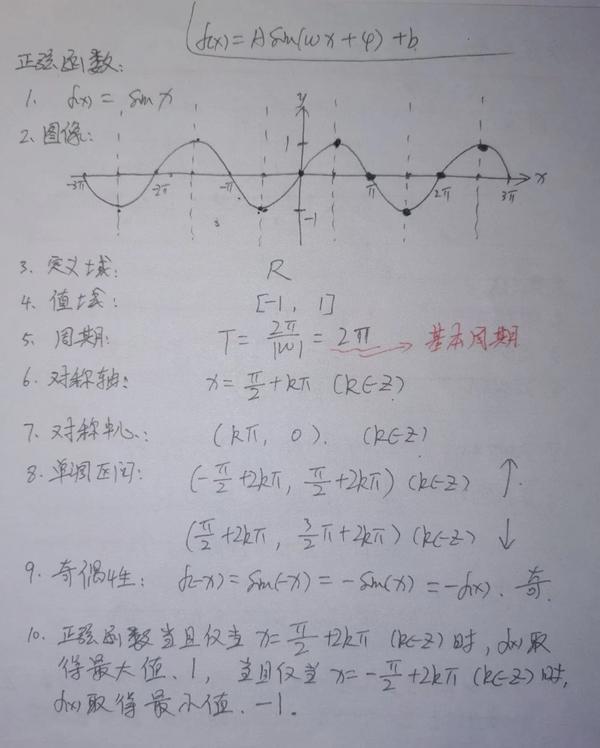 f(x) = A sin(ωx + φ) + b
正弦函数:
1. f(x) = sin x
2. 图像:
y
1
-3π -2π -π π 2π 3π x
-1
3. 定义域: R
4. 值域: [-1, 1]
5. 周期: T = 2π/|ω| = 2π → 基本周期
6. 对称轴: x = π/2 + kπ (k∈Z)
7. 对称中心: (kπ, 0). (k∈Z)
8. 单调区间: (-π/2 + 2kπ, π/2 + 2kπ) (k∈Z) ↑
(π/2 + 2kπ, 3/2 π + 2kπ) (k∈Z) ↓
9. 奇偶性: f(-x) = sin(-x) = -sin(x) = -f(x). 奇.
10. 正弦函数当且仅当 x = π/2 + 2kπ (k∈Z) 时, f(x) 取
得最大值. 1, 当且仅当 x = -π/2 + 2kπ (k∈Z) 时,
f(x) 取得最小值. -1.